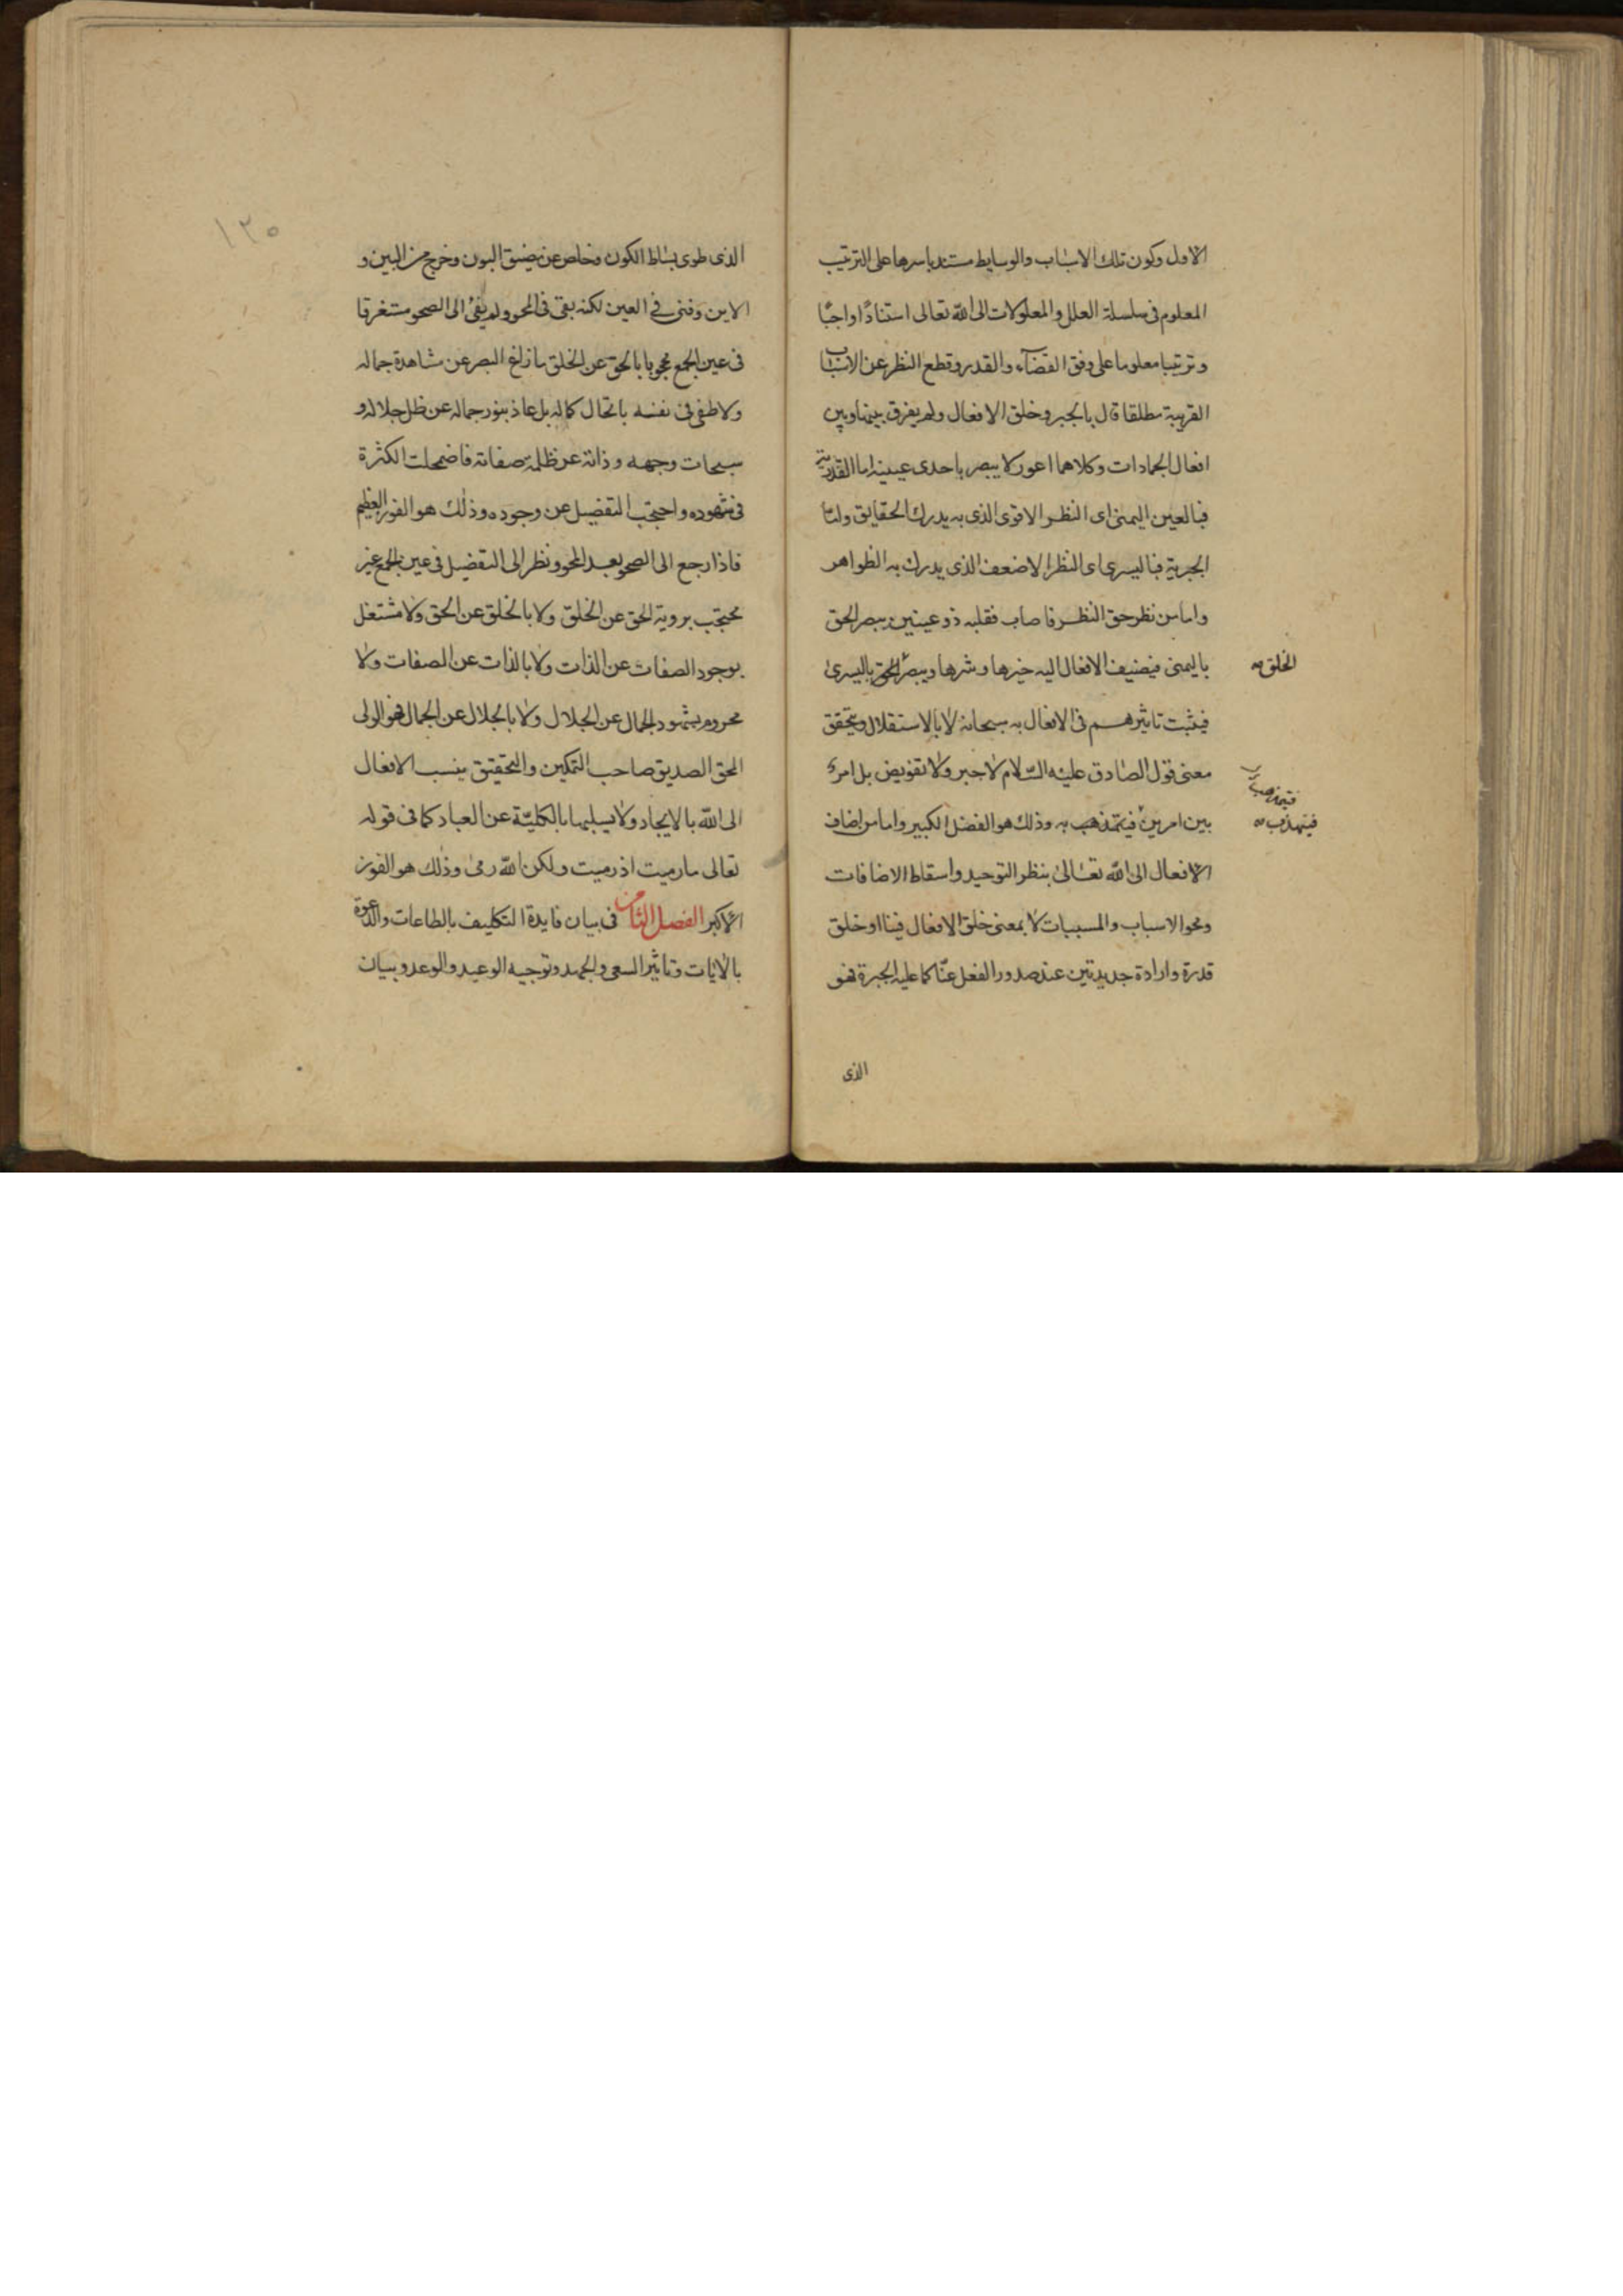 الاول وكون تلك الاسباب والوسايط مستند باسرها على الترتيب
المعلوم فى سلسلة العلل والمعلولات الى الله تعالى استنادًا واجبًا
وترتيبا معلوما على وفق القضآء والقدر وقطع النظر عن الاسباب
القريبة مطلقا قال بالجبر وخلق الافعال ولم يفرق بينها وبين
افعال الجمادات وكلاهما اعور لا يبصر باحدى عينيه اما القدرية
فبالعين اليمنى اى النظر الاقوى الذى به يدرك الحقايق واما
الجبرية فباليسرى اى النظر الاضعف الذى يدرك به الظواهر
واما من نظر حق النظر فاصاب فقلبه ذو عينين يبصر الحق
باليمنى فيضيف الافعال اليه خيرها وشرها ويبصر الحق باليسرى
الخلق
فيثبت تاثيرهم فى الافعال به سبحانه لا بالاستقلال ويتحقق
معنى قول الصادق عليه السّلام لا جبر ولا تفويض بل امر
بين امرين فيتمذهب به وذلك هو الفضل الكبير واما من اضاف
فيتمذهب
فيتهذب
الافعال الى الله تعالى بنظر التوحيد واسقاط الاضافات
ومحو الاسباب والمسببات لا بمعنى خلق الافعال فينا او خلق
قدرة وارادة جديدتين عند صدور الفعل عنّا كما عليه الجبرة فهو
الذى
١٣٥
الذى طوى بساط الكون وخلص عن مضيق البون وخرج من البين و
الاين وفنى في العين لكنه بقى فى المحو ولم يفئ الى الصحو مستغرقا
فى عين الجمع محجوبا بالحق عن الخلق ما زاغ البصر عن مشاهدة جماله
ولا طغى فى نفسه باتحال كماله بل عاذ بنور جماله عن ظل جلاله و
سبحات وجهه وذاته عن ظلمة صفاته فاضمحلت الكثرة
فى شهوده واحتجب التفضيل عن وجوده وذلك هو الفوز العظيم
فاذا رجع الى الصحو بعد المحو ونظر الى التفضيل فى عين الجمع غير
محتجب بروية الحق عن الخلق ولا بالخلق عن الحق ولا مشتغل
بوجود الصفات عن الذات ولا بالذات عن الصفات ولا
محروم بشهود الجمال عن الجلال ولا بالجلال عن الجمال فهو الولى
المحق الصديق صاحب التمكين والتحقيق ينسب الافعال
الى الله بالايجاد ولا يسلبها بالكليّة عن العباد كما فى قوله
تعالى ما رميت اذ رميت ولكن الله رمى وذلك هو الفوز
الاكبر الفصل الثامن فى بيان فايدة التكليف بالطاعات والدعوة
بالايات وتاثير السعى والجهد وتوجيه الوعيد والوعد وبيان